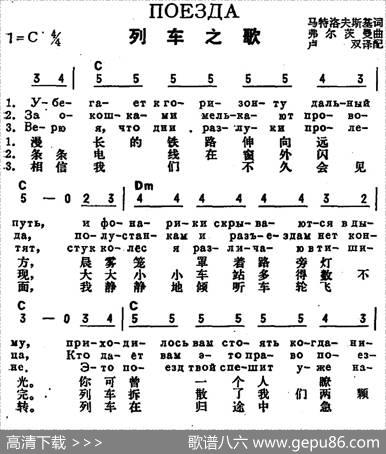 ПОЕЗДА
列车之歌
马特洛夫斯基词
弗尔茨曼曲
卢双译配
1=C 4/4
C
3 4 5 5 5 5 5 5 4 3
1. У-бе-гает к го-ри-зон-ту дальный
2. За окош-ками мель-кают про-во-
3. Верю я, что дни раз-луки про-ле-
1. 漫长的铁路伸向远
2. 条条电线在窗外闪
3. 相信我们不久会见
C Dm
5 — 0 2 3 4 4 4 4 4 4 3 2
путь, и фо-на-рики скры-ва-ются в ды-
да, по-лу-стан-кам и разъ-ездам нет кон-
тят, стук ко-лес я раз-ли-чаю в ти-ши-
方, 晨雾笼罩着路旁灯
现, 大大小小车站多得数不
面, 我静静地倾听车轮飞
C C
3 — 0 3 4 5 5 5 5 5 5 4 3
му, при-хо-ди-лось вам сто-ять ког-да-ни-
ца, Кто даёт вам э-то пра-во по-ез-
не. Э-то по-езд твой спешит у-же на-
光。 你可曾一个人瞭
完。 列车拆散了我们两颗
转。 列车在归途中急
高清下载 >>>
歌谱八六 www.gepu86.com